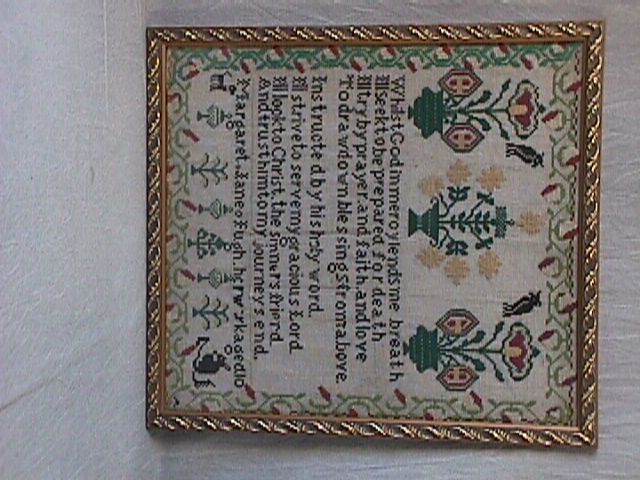 Whilst God in mercy lends me breath
Ill seek to be prepared for death
Ill try by prayer and faith and love
To draw down blessings from above
Instructed by his holy word.
Ill strive to serve my gracious Lord
Ill look to Christ the sinners friend
And trust him to my journeys end.
Margaret Lane her work aged 10